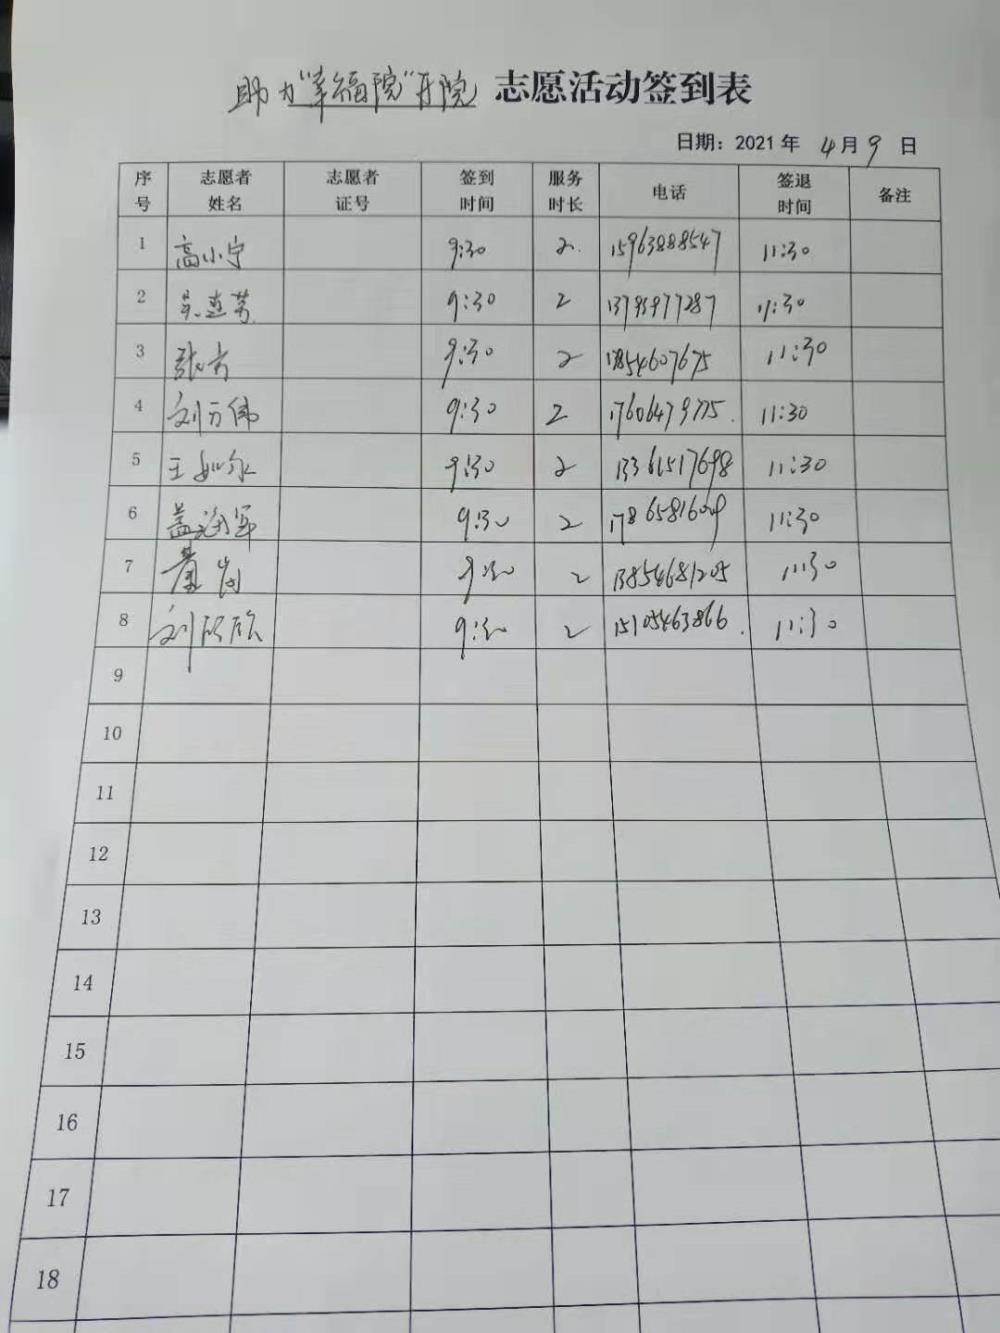 助力“幸福院”开院 志愿活动签到表
日期：2021年 4月9日
序号 志愿者姓名 志愿者证号 签到时间 服务时长 电话 签退时间 备注
1 高小宁 9:30 2 15963888547 11:30
2 9:30 2 13793977287 11:30
3 张方 9:30 2 17854607675 11:30
4 刘万伟 9:30 2 17606479775 11:30
5 王如永 9:30 2 13361517698 11:30
6 盖海军 9:30 2 11:30
7 9:30 2 13854681205 11:30
8 刘欣欣 9:30 2 15105463866 11:30
9
10
11
12
13
14
15
16
17
18